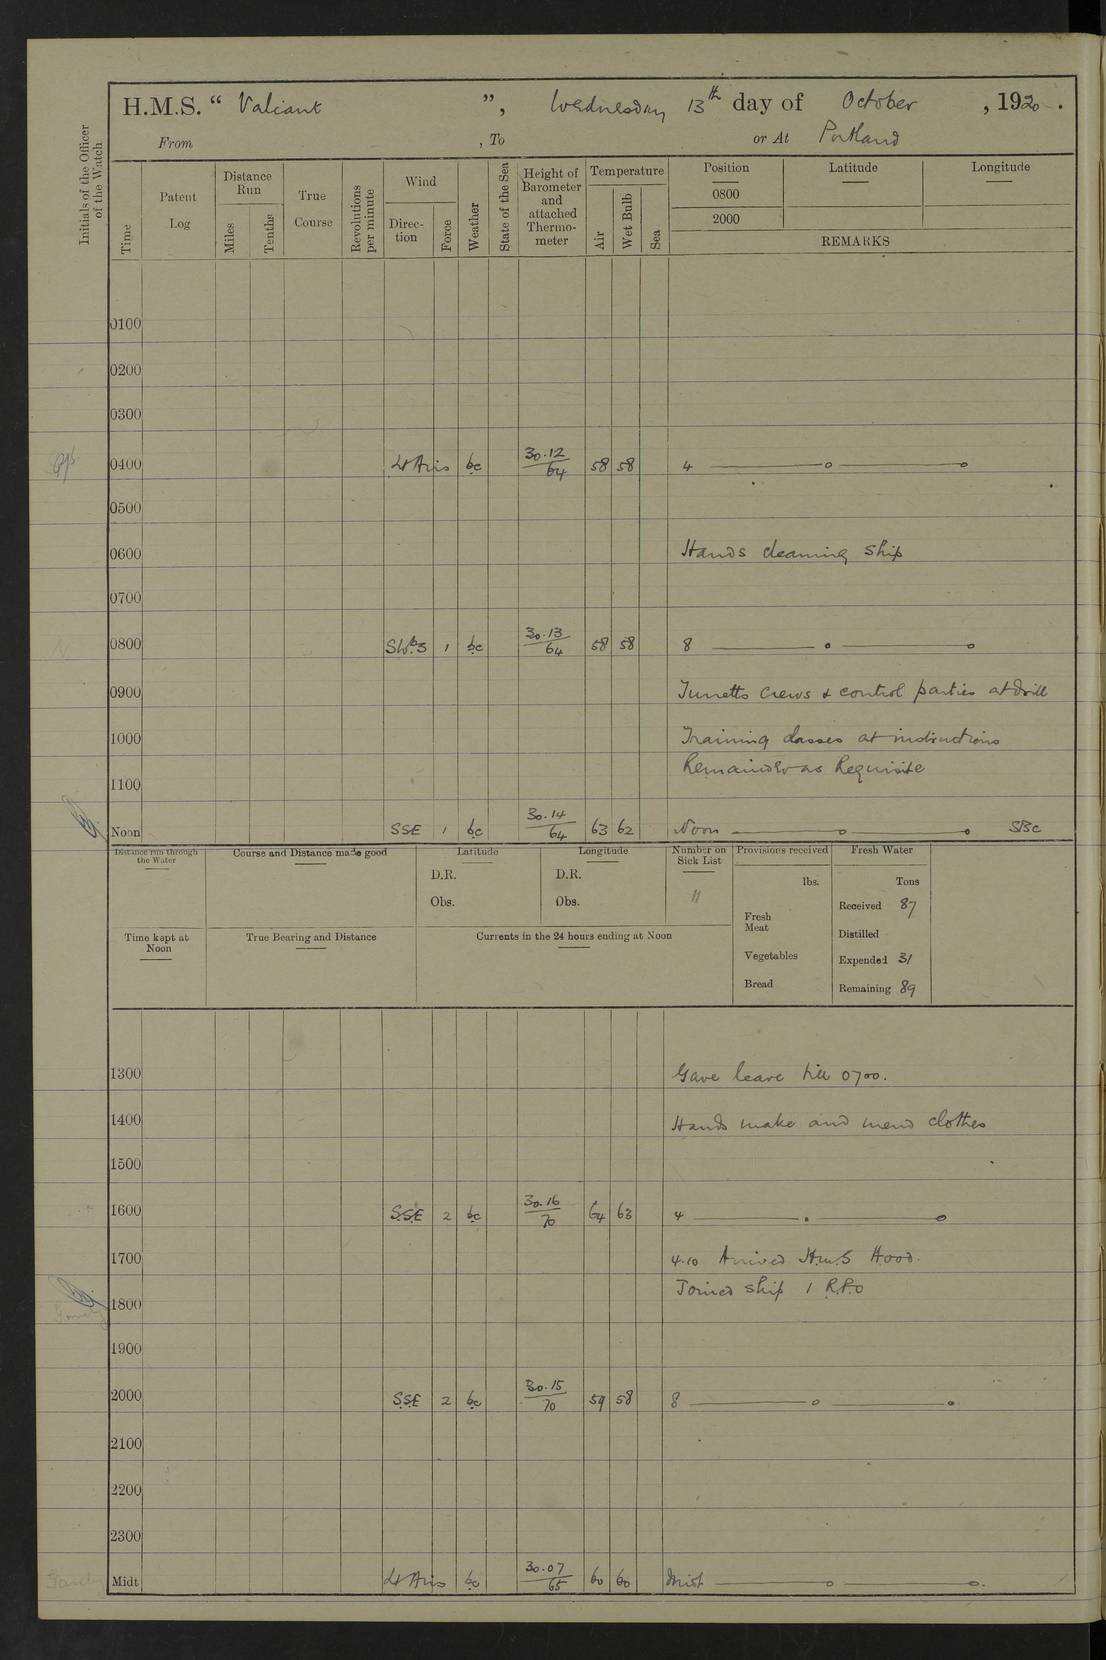 H.M.S. “ Valiant ”, Wednesday 13th day of October , 1920 .
From , To or At Portland
Initials of the Officer of the Watch
Time
Patent Log
Distance Run
Miles
Tenths
True Course
Revolutions per minute
Wind
Direc-tion
Force
Weather
State of the Sea
Height of Barometer and attached Thermo-meter
Temperature
Air
Wet Bulb
Sea
Position Latitude Longitude
0800
2000
REMARKS
0100
0200
0300
0400 Lt Airs bc 30.12/64 58 58 4
0500
0600 Hands cleaning ship
0700
0800 SWbS 1 bc 30.13/64 58 58 8
0900 Turretts crews & control parties at drill
1000 Training classes at instructions
Remainder as Requisite
1100
Noon SSE 1 bc 30.14/64 63 62 Noon SBC
Distance run through the Water
Course and Distance made good
Latitude
D.R.
Obs.
Longitude
D.R.
Obs.
Number on Sick List
11
Provisions received
lbs.
Fresh Meat
Vegetables
Bread
Fresh Water
Tons
Received 87
Distilled
Expended 31
Remaining 89
Time kept at Noon
True Bearing and Distance
Currents in the 24 hours ending at Noon
1300 Gave leave till 0700.
1400 Hands make and mend clothes
1500
1600 SSE 2 bc 30.16/70 64 63 4
1700 4.10 Arrived H.M.S Hood.
Joined ship 1 R.P.O
1800
1900
2000 SSE 2 bc 30.15/70 59 58 8
2100
2200
2300
Midt Lt Airs bc 30.07/65 60 60 Midt